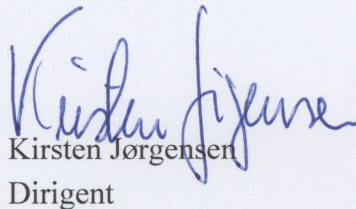 Kirsten Jørgensen
Kirsten Jørgensen
Dirigent